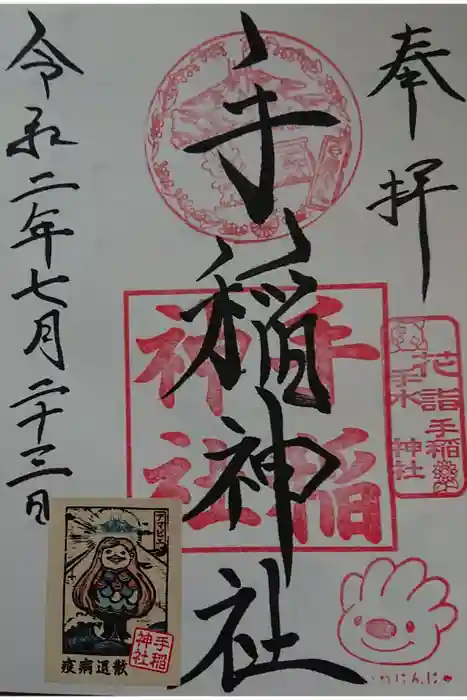 奉拝
手稲神社
令和二年七月二十三日
手稲
神社
花手水詣
手稲
神社
アマビエ
手稲
神社
疫病退散